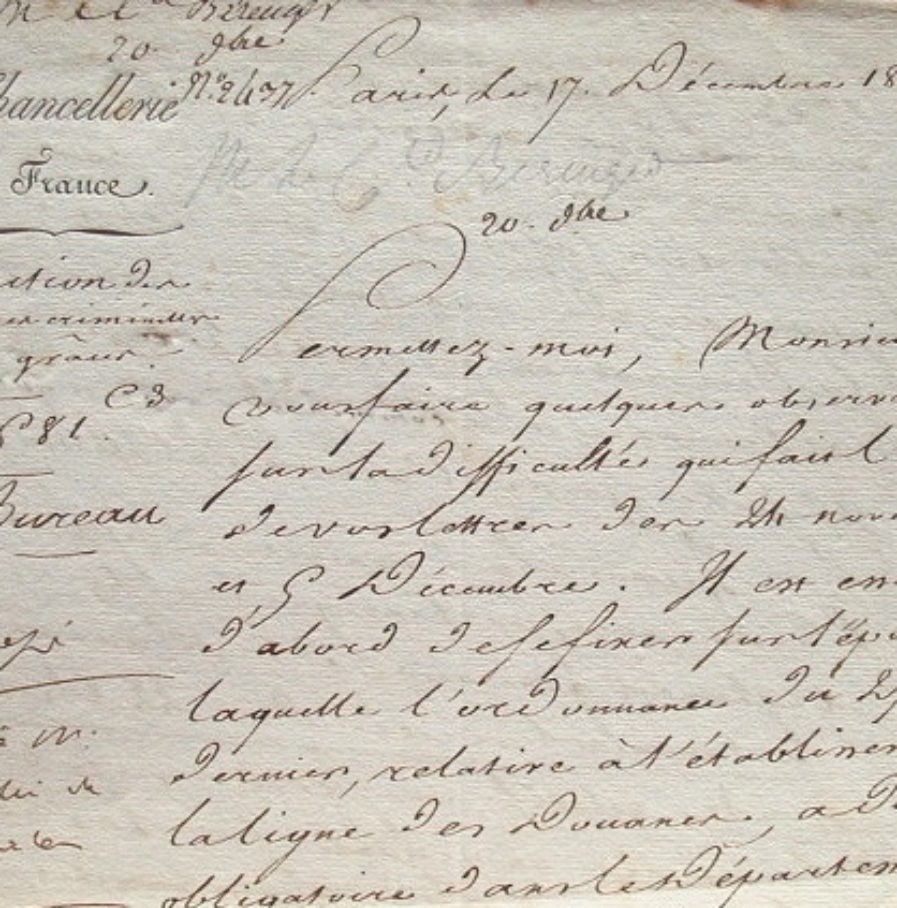 Berenger
20 xbre
Chancellerie N.º 2437 Paris, Le 17. Décembre 18
France.
20. xbre
ction des
es criminelles
grâces.
C 3
681.
Bureau
Permettez-moi, Monsieu
vous faire quelques observa
sur la difficultés qui fait l
de vos lettres des 24 nove
et 5 Décembre. Il est en
d'abord de se fixer sur l'épo
laquelle l'ordonnance du
dernier, relative à l'établissem
la ligne des Douanes, a
obligatoire dans le Départem